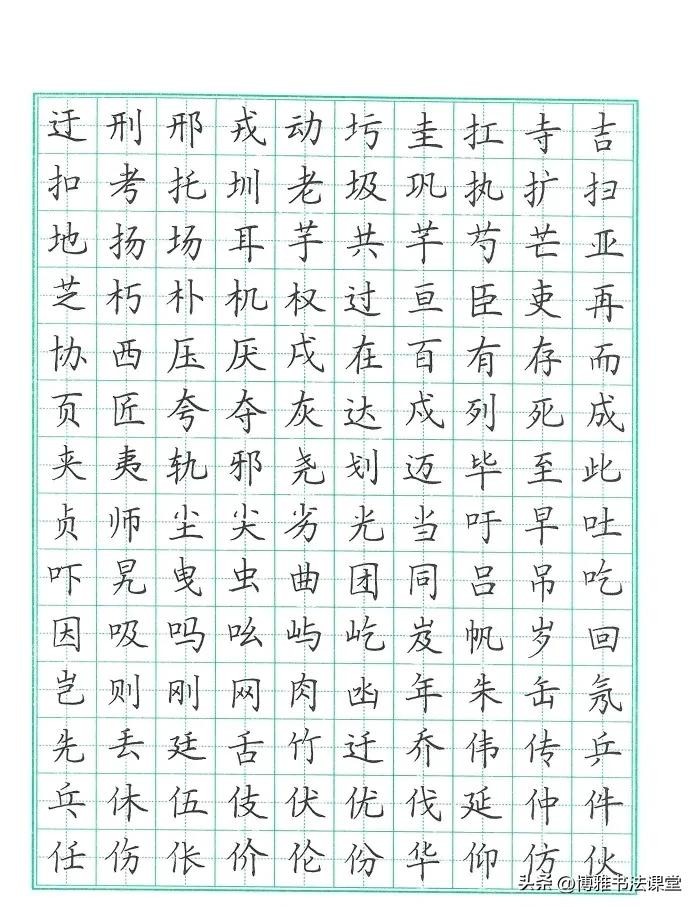 迂刑邢戎动圬圭扛寺吉
扣考托圳老圾巩执扩扫
地扬场耳芋共芊芍芒亚
芝朽朴机权过亘臣吏再
协西压厌戌在百有存而
页匠夸夺灰达戍列死成
夹夷轨邪尧划迈毕至此
贞师尘尖劣光当吁早吐
吓晃曳虫曲团同吕吊吃
因吸吗吆屿屹岌帆岁回
岂则刚网肉凼年朱缶氖
先丢廷舌竹迁乔伟传乒
乓休伍伎伏优伐延仲件
任伤伥价伦份华仰仿伙
头条 @博雅书法课堂